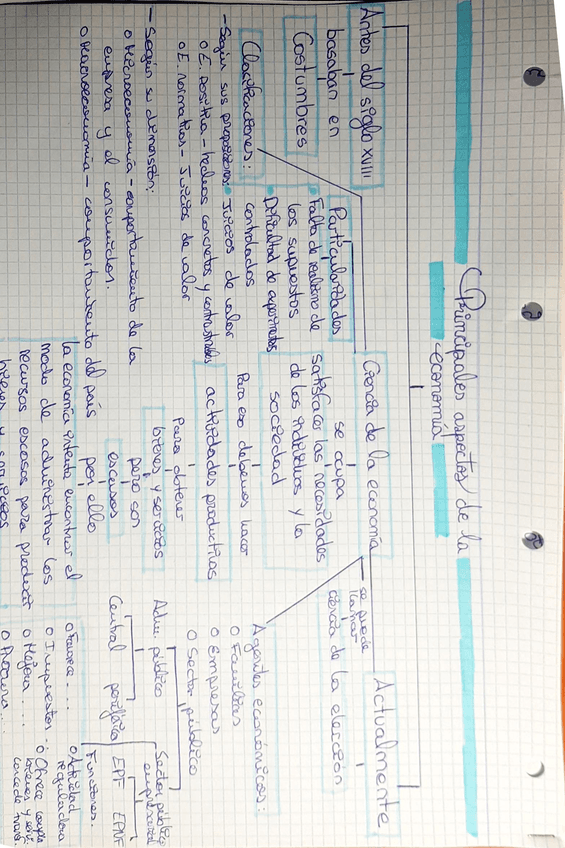 Principales aspectos de la
economía
Antes del siglo XVIII
basaban en
Costumbres
Ciencia de la economía
se ocupa
satisfacer las necesidades
de los individuos y la
sociedad
Para eso debemos hacer
actividades productivas
Para obtener
bienes y servicios
pero son
escasos
por ello
la economía intenta encontrar el
modo de administrar los
recursos escasos para producir
bienes y servicios
Actualmente
se puede
llamar
ciencia de la elección
Particularidades
Falta de realismo de
los supuestos
Dificultad de experimentos
controlados
Juicios de valor
Clasificaciones:
- Según sus proposiciones:
o E. Positiva - hechos concretos y contrastables
o E. normativas - Juicios de valor
- Según su dimensión:
o Microeconomía - comportamiento de la
empresa y el consumidor.
o Macroeconomía - comportamiento del país
Agentes económicos:
o Familias
o empresas
o Sector público
Adm. público
Central periférico
Sector público
empresarial
EPF EPNF
Funciones.
o Actividad
reguladora
o Ofrece
bienes y serv.
o Impuestos..
o Mejora ...
o Procura...